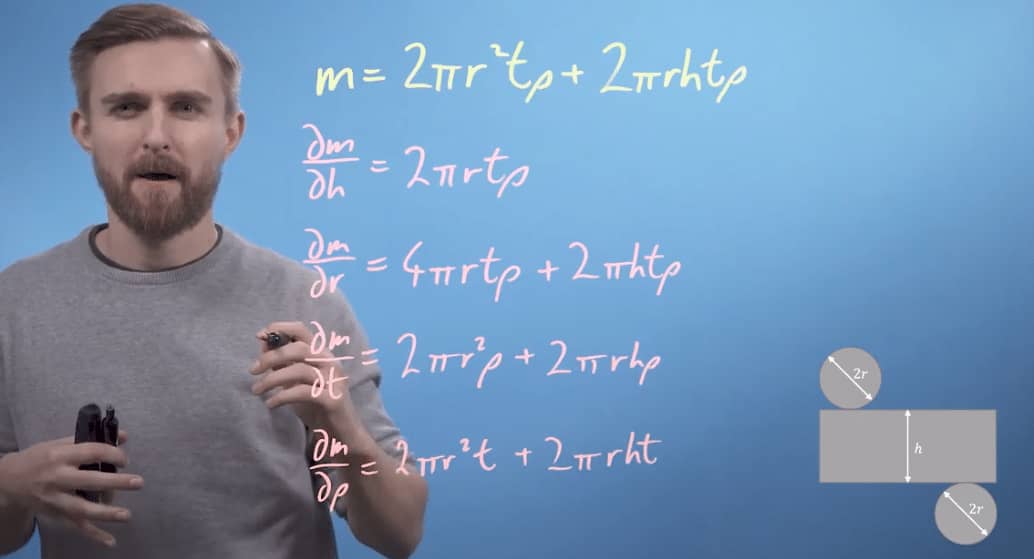 m = 2πr²tρ + 2πrhtρ
∂m/∂h = 2πrtρ
∂m/∂r = 4πrtρ + 2πhtρ
∂m/∂t = 2πr²ρ + 2πrhρ
∂m/∂ρ = 2πr²t + 2πrht
2r
h
2r